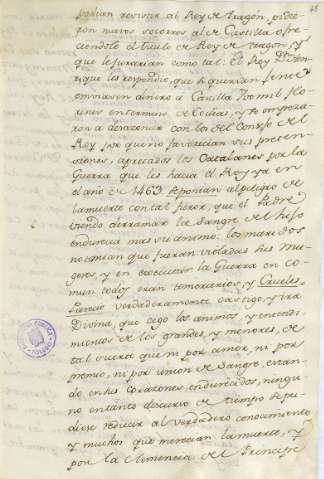 podian resistir al Rey de Aragón, pidie-
ron nuevos socorros al de Castilla ofre-
ciendole el titulo de Rey de Aragon, y
que le jurarian como tal. El Rey D. Hen-
rrique les respondio, que si querian
enviasen dinero a Castilla mil flo-
rines en termino de
a con los del Consejo del
Rey por que no favorecian sus preten-
siones, apretados los Catalanes por la
Guerra que les hacia el Rey ya en
el año de 1463 se ponian al peligro de
la muerte con tal furor, que el Padre
viendo derramar la Sangre de el hijo
endurecia mas su animo: los maridos
no temian que fueran violadas sus mu-
geres, y en executar la Guerra en co-
mun todos eran temerarios, y Crueles.
Parecio verdaderamente castigo, y ira
Divina, que cego los animos, y entendi-
mientos de los grandes, y menores, de
tal suerte que ni por amor, ni por
premio, ni por union de Sangre, estan-
do en sus Corazones endurecidos, ningu-
no en tanto discurso de tiempo se pu-
diese reducir al verdadero conocimiento
y muchos que merecian la muerte, y
por la Clemencia de el Principe